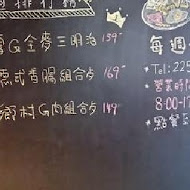 排行榜
G全麥三明治 139
德式香腸組合餐 169
鄉村G肉組合餐 149
每週
Tel: 225
營業時間
8:00-1
點餐